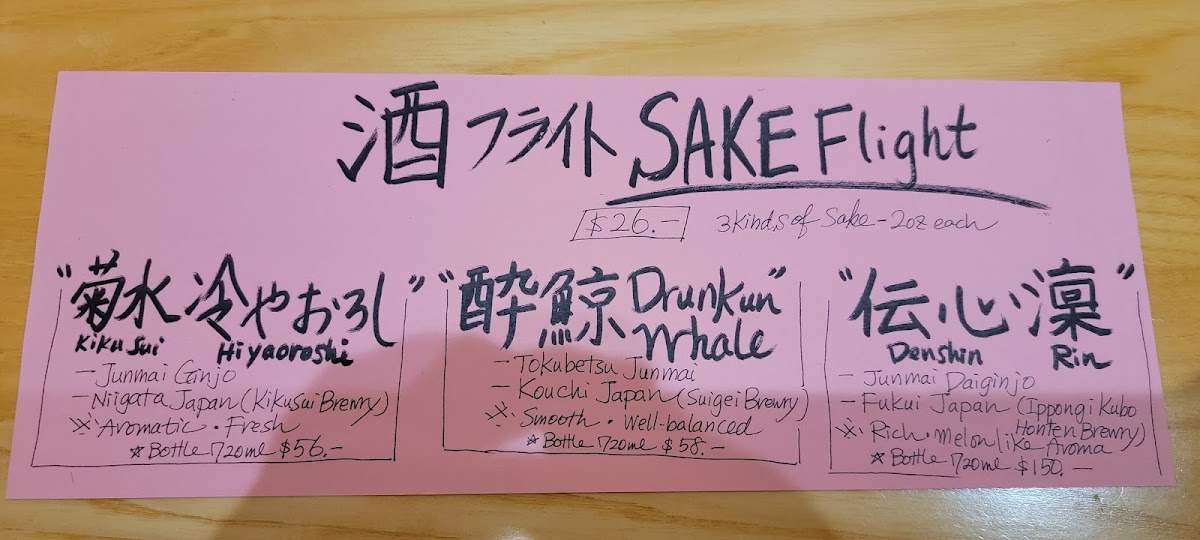 酒フライト SAKE Flight
$26.− 3 Kinds of Sake − 2oz each
"菊水 冷やおろし"
Kiku Sui Hiyaoroshi
− Junmai Ginjo
− Niigata Japan (Kikusui Brewry)
※ Aromatic・Fresh
☆ Bottle 720ml $56.−
"酔鯨 Drunkun Whale"
− Tokubetsu Junmai
− Kouchi Japan (Suigei Brewry)
※ Smooth・Well-balanced
☆ Bottle 720ml $58.−
"伝心 凜"
Denshin Rin
− Junmai Daiginjo
− Fukui Japan (Ippongi Kubo
Honten Brewry)
※ Rich・Melon like Aroma
☆ Bottle 720ml $150.−